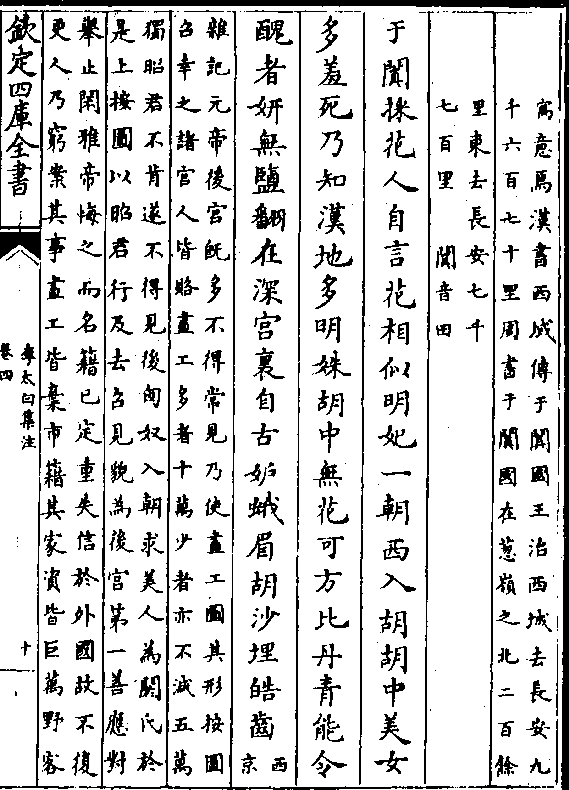 寓意焉漢書西域傳于闐國王治西城去長安九
千六百七十里周書于闐國在葱嶺之北二百餘
里東去長安七千
七百里 闐音田
于闐採花人自言花相似明妃一朝西入胡胡中美女
多羞死乃知漢地多明姝胡中無花可方比丹青能令
醜者妍無鹽翻在深宫裏自古妬蛾眉胡沙埋皓齒
西
京
雜記元帝後宫既多不得常見乃使畫工圖其形按圖
召幸之諸宫人皆賂畫工多者十萬少者亦不減五萬
獨昭君不肯遂不得見後匈奴入朝求美人為閼氏於
是上按圖以昭君行及去召見貌為後宫第一善應對
舉止閑雅帝悔之而名籍已定重失信於外國故不復
更人乃窮案其事畫工皆棄市籍其家資皆巨萬野客
欽定四庫全書
李太白集注
卷四
十